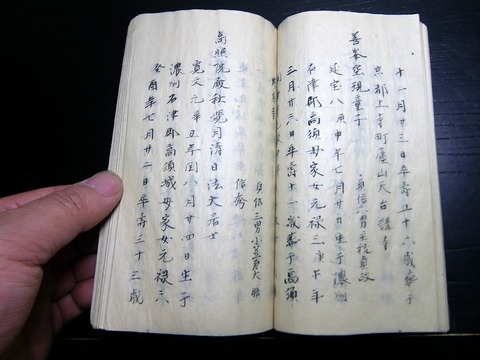 十一月廿三日卒壽五十六歳葬于
京都上寺町廬山天台講寺
善峯空現童子
貞信八男主税貞政
延宝八庚申年七月廿日生于濃州
石津郡高須 家女元禄三庚午年
三月廿六日卒壽十一歳葬于高須
高照院殿秋覺月清日法大居士
貞信三男小笠原大
信秀
寛文元辛丑年閏八月廿四日生于
濃州石津郡高須城母家女元禄六
癸酉年七月廿二日卒壽三十三歳